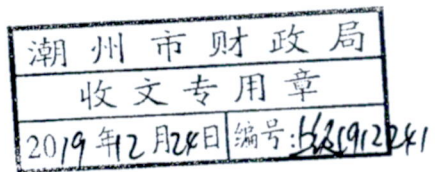 潮州市财政局
收文专用章
2019年12月24日 编号: